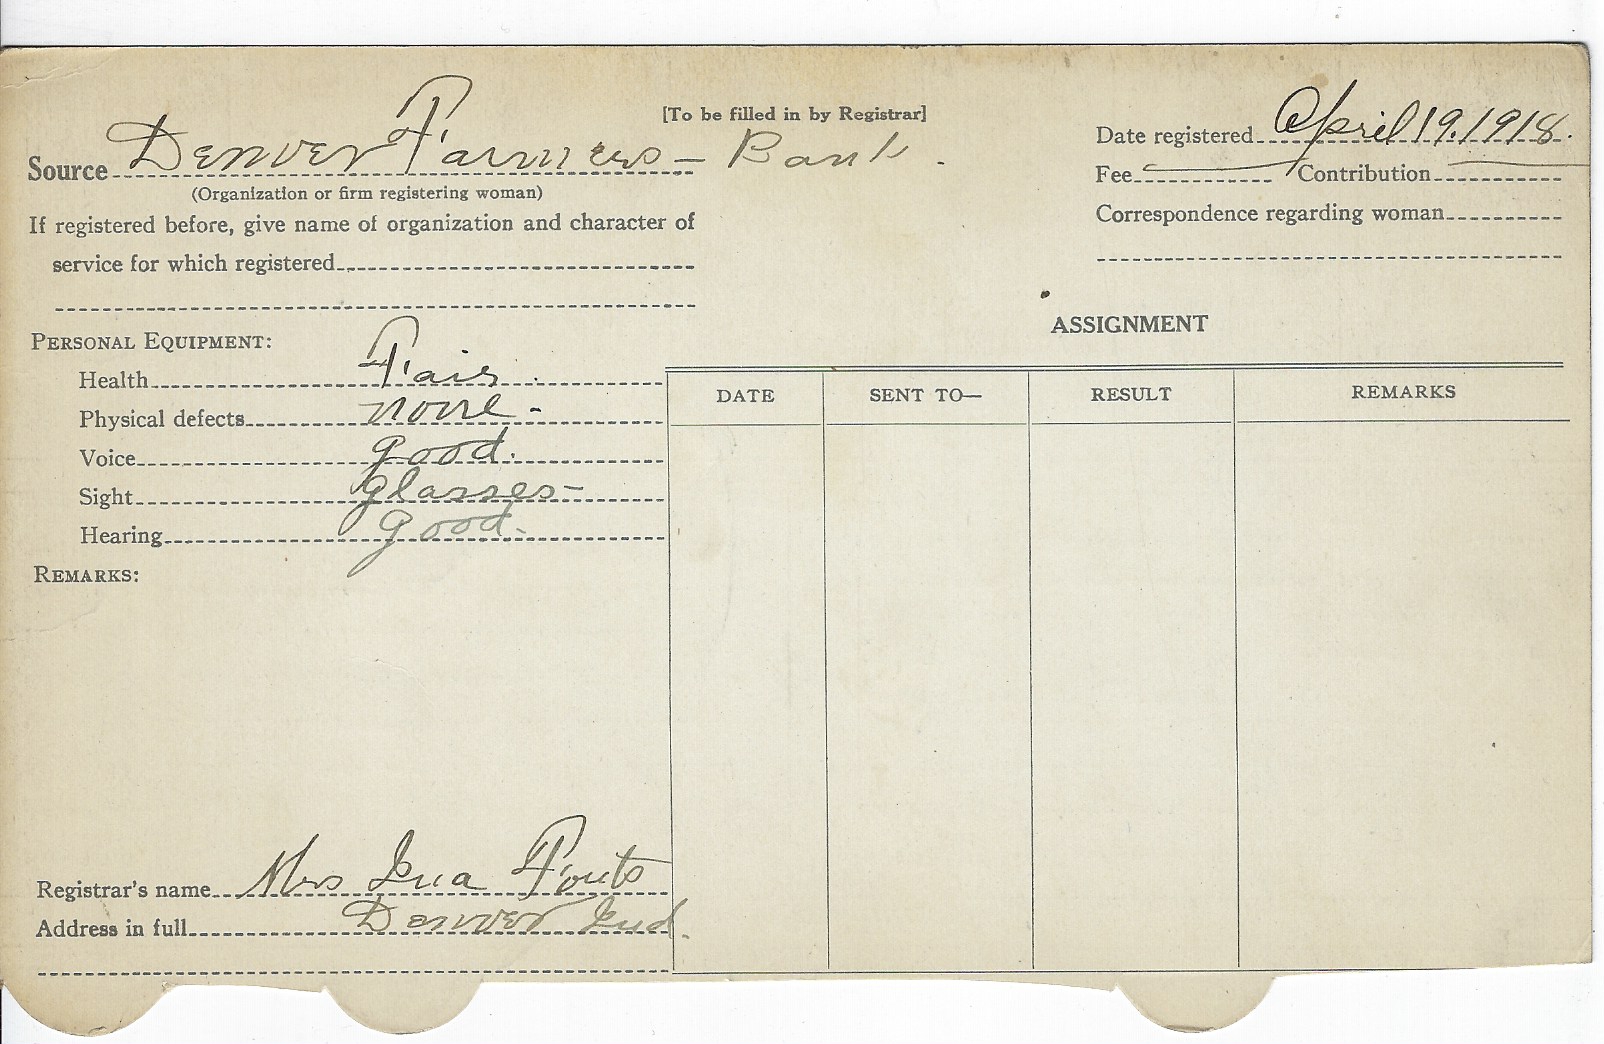 [To be filled in by Registrar]
Source Denver Farmers - Bank.
(Organization or firm registering woman)
If registered before, give name of organization and character of
service for which registered
Date registered April 19, 1918.
Fee Contribution
Correspondence regarding woman
PERSONAL EQUIPMENT:
Health Fair.
Physical defects none -
Voice good.
Sight glasses -
Hearing good.
REMARKS:
Registrar's name Mrs Ina Fouts
Address in full Denver Ind.
ASSIGNMENT
DATE SENT TO— RESULT REMARKS